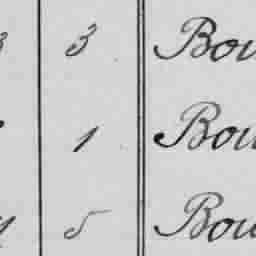 3 Bou
1 Bou
5 Bou